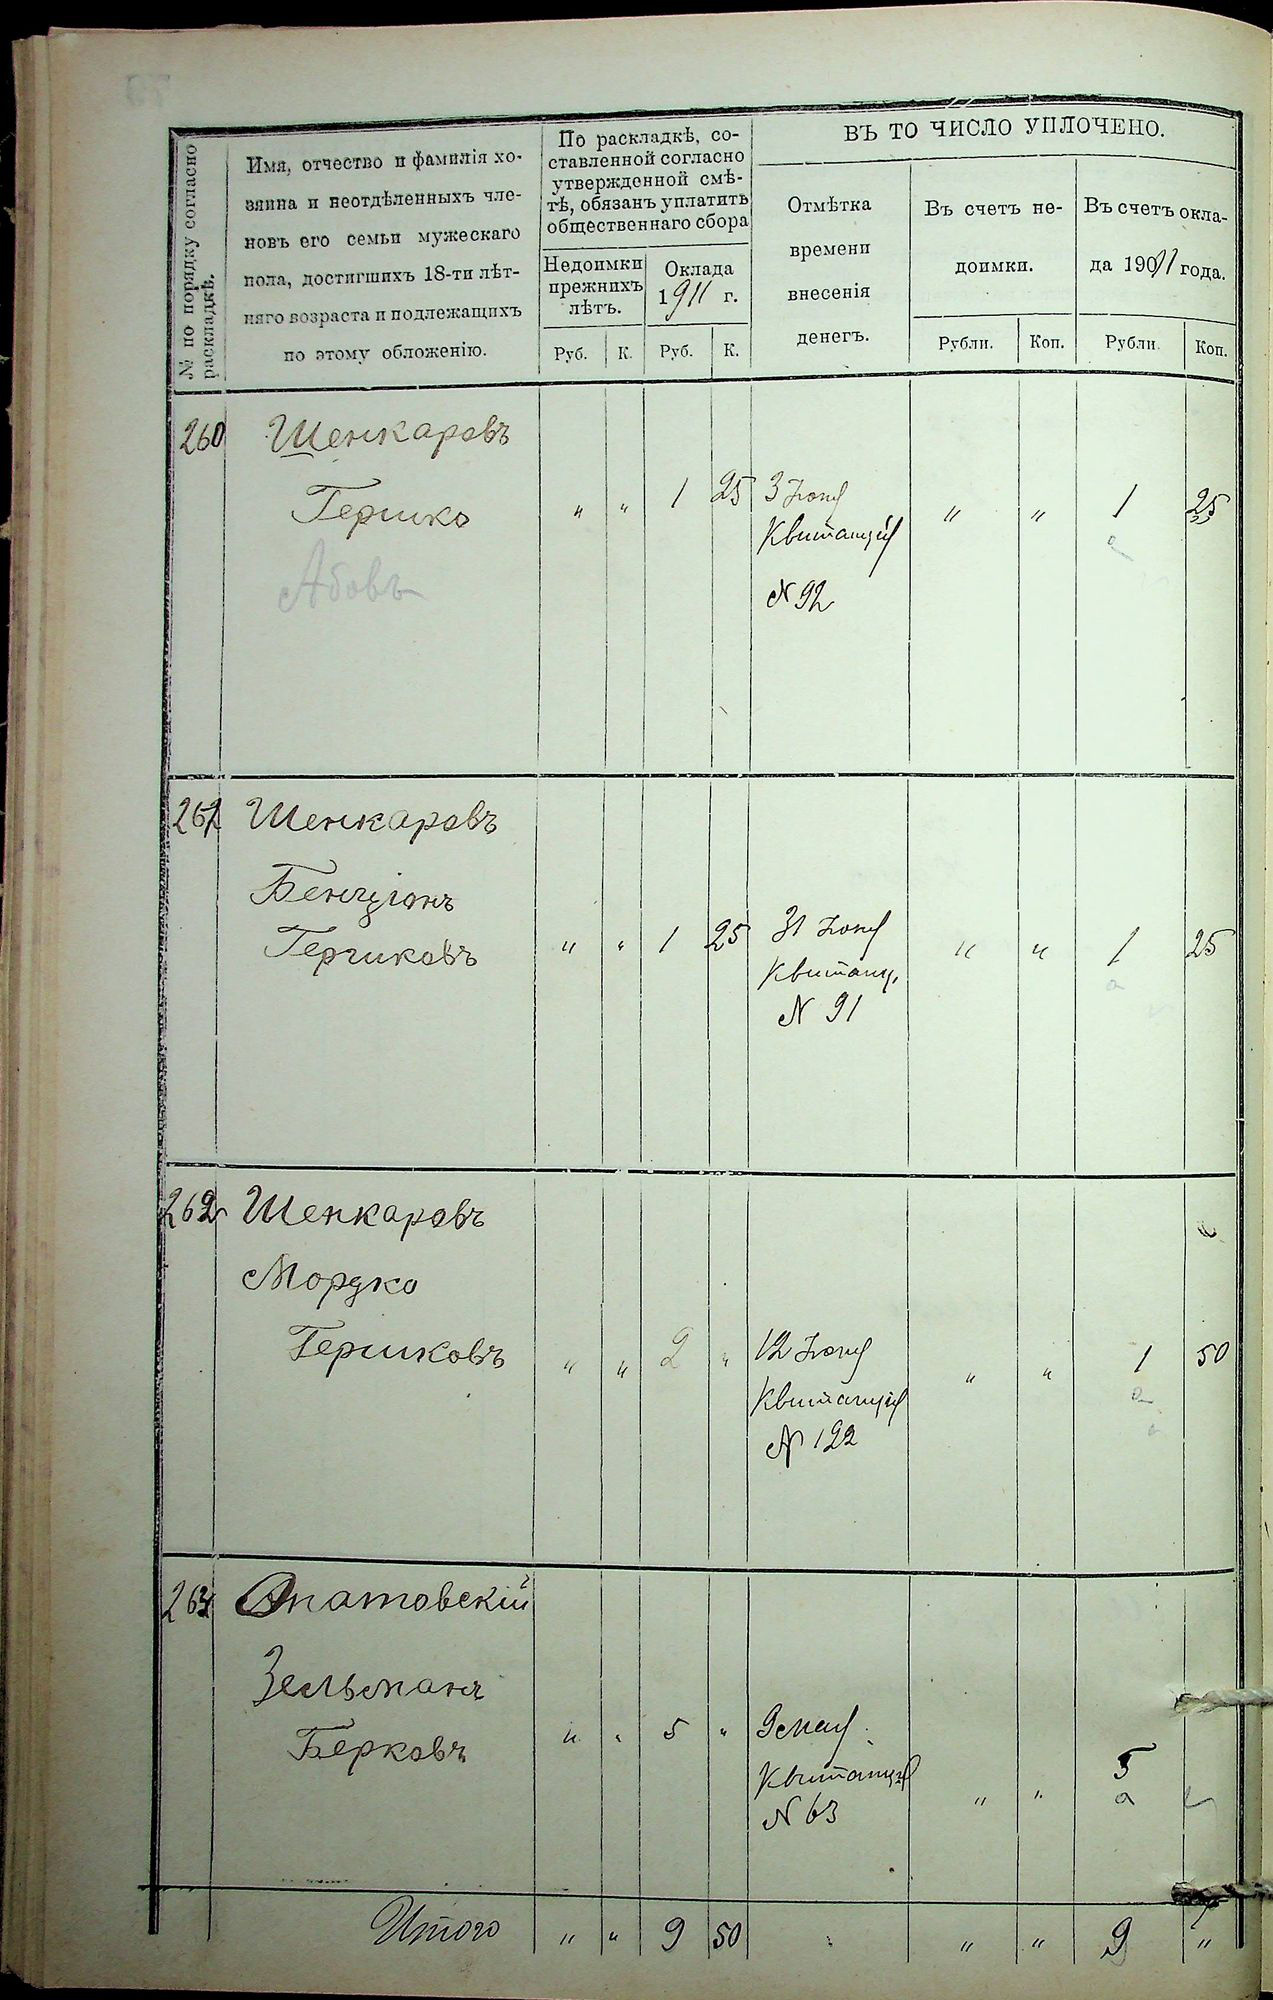 № по порядку согласно
раскладкѣ.
Имя, отчество и фамилія хо-
зяина и неотдѣленныхъ чле-
новъ его семьи мужескаго
пола, достигшихъ 18-ти лѣт-
няго возраста и подлежащихъ
по этому обложенію.
По раскладкѣ, со-
ставленной согласно
утвержденной смѣ-
тѣ, обязанъ уплатить
общественнаго сбора
Недоимки
прежнихъ
лѣтъ.
Оклада
1911 г.
Руб. К. Руб. К.
ВЪ ТО ЧИСЛО УПЛОЧЕНО.
Отмѣтка
времени
внесенія
денегъ.
Въ счетъ не-
доимки.
Рубли. Коп.
Въ счетъ окла-
да 1911 года.
Рубли. Коп.
260 Шенкаровъ
Гершко
Абовъ
" " 1 25
3
Квитанція
№ 92
" " 1 25
Шенкаровъ
Бенціонъ
Гершковъ
" " 1 25
31
Квитанц.
№ 91
" " 1 25
262 Шенкаровъ
Мордко
Гершковъ
" " 2 "
12
Квитанція
№ 122
" " 1 50
Опатовскій
Зельманъ
Берковъ
" " 5 "
9 мая
Квитанція
№ 63
" " 5
Итого " " 9 50 " " 9 "